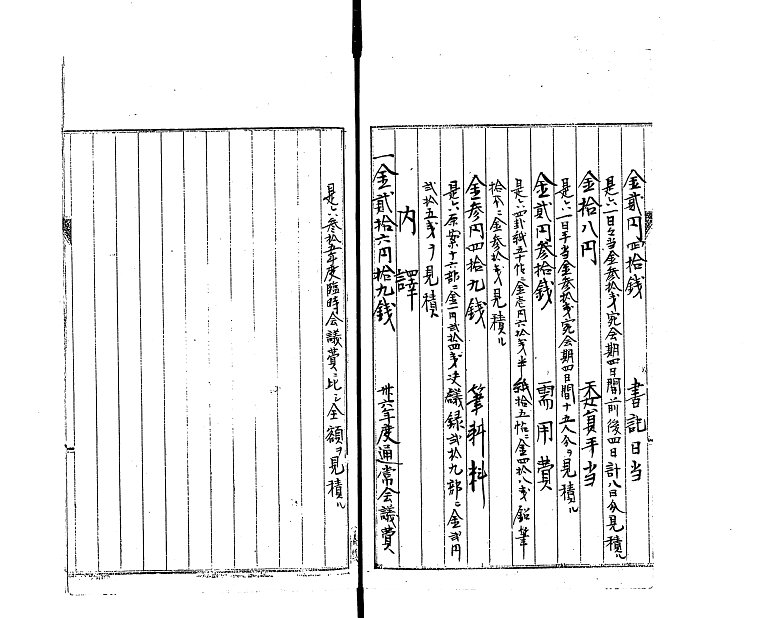 金貳円四拾銭　書記日当
是ハ一日日当金参拾銭宛会期四日間前後四日計八日分見積ル
金拾八円　委員手当
是ハ一日手当金参拾銭宛会期四日間十五人分ヲ見積ル
金貳円参拾銭　需用費
是ハ四卦紙五十帖ニ金壱円六拾銭半紙拾五帖ニ金四拾八銭鉛筆
拾本ニ金参拾銭見積ル
金参円四拾九銭　筆耕料
是ハ原案十六部ニ金一円貳拾四銭决議録貳拾九部ニ金貳円
貳拾五銭ヲ見積
内譯
一金貳拾六円拾九銭　卅六年度通常会議費
是ハ参拾五年度臨時会議費ニ比シ全額ヲ見積ル